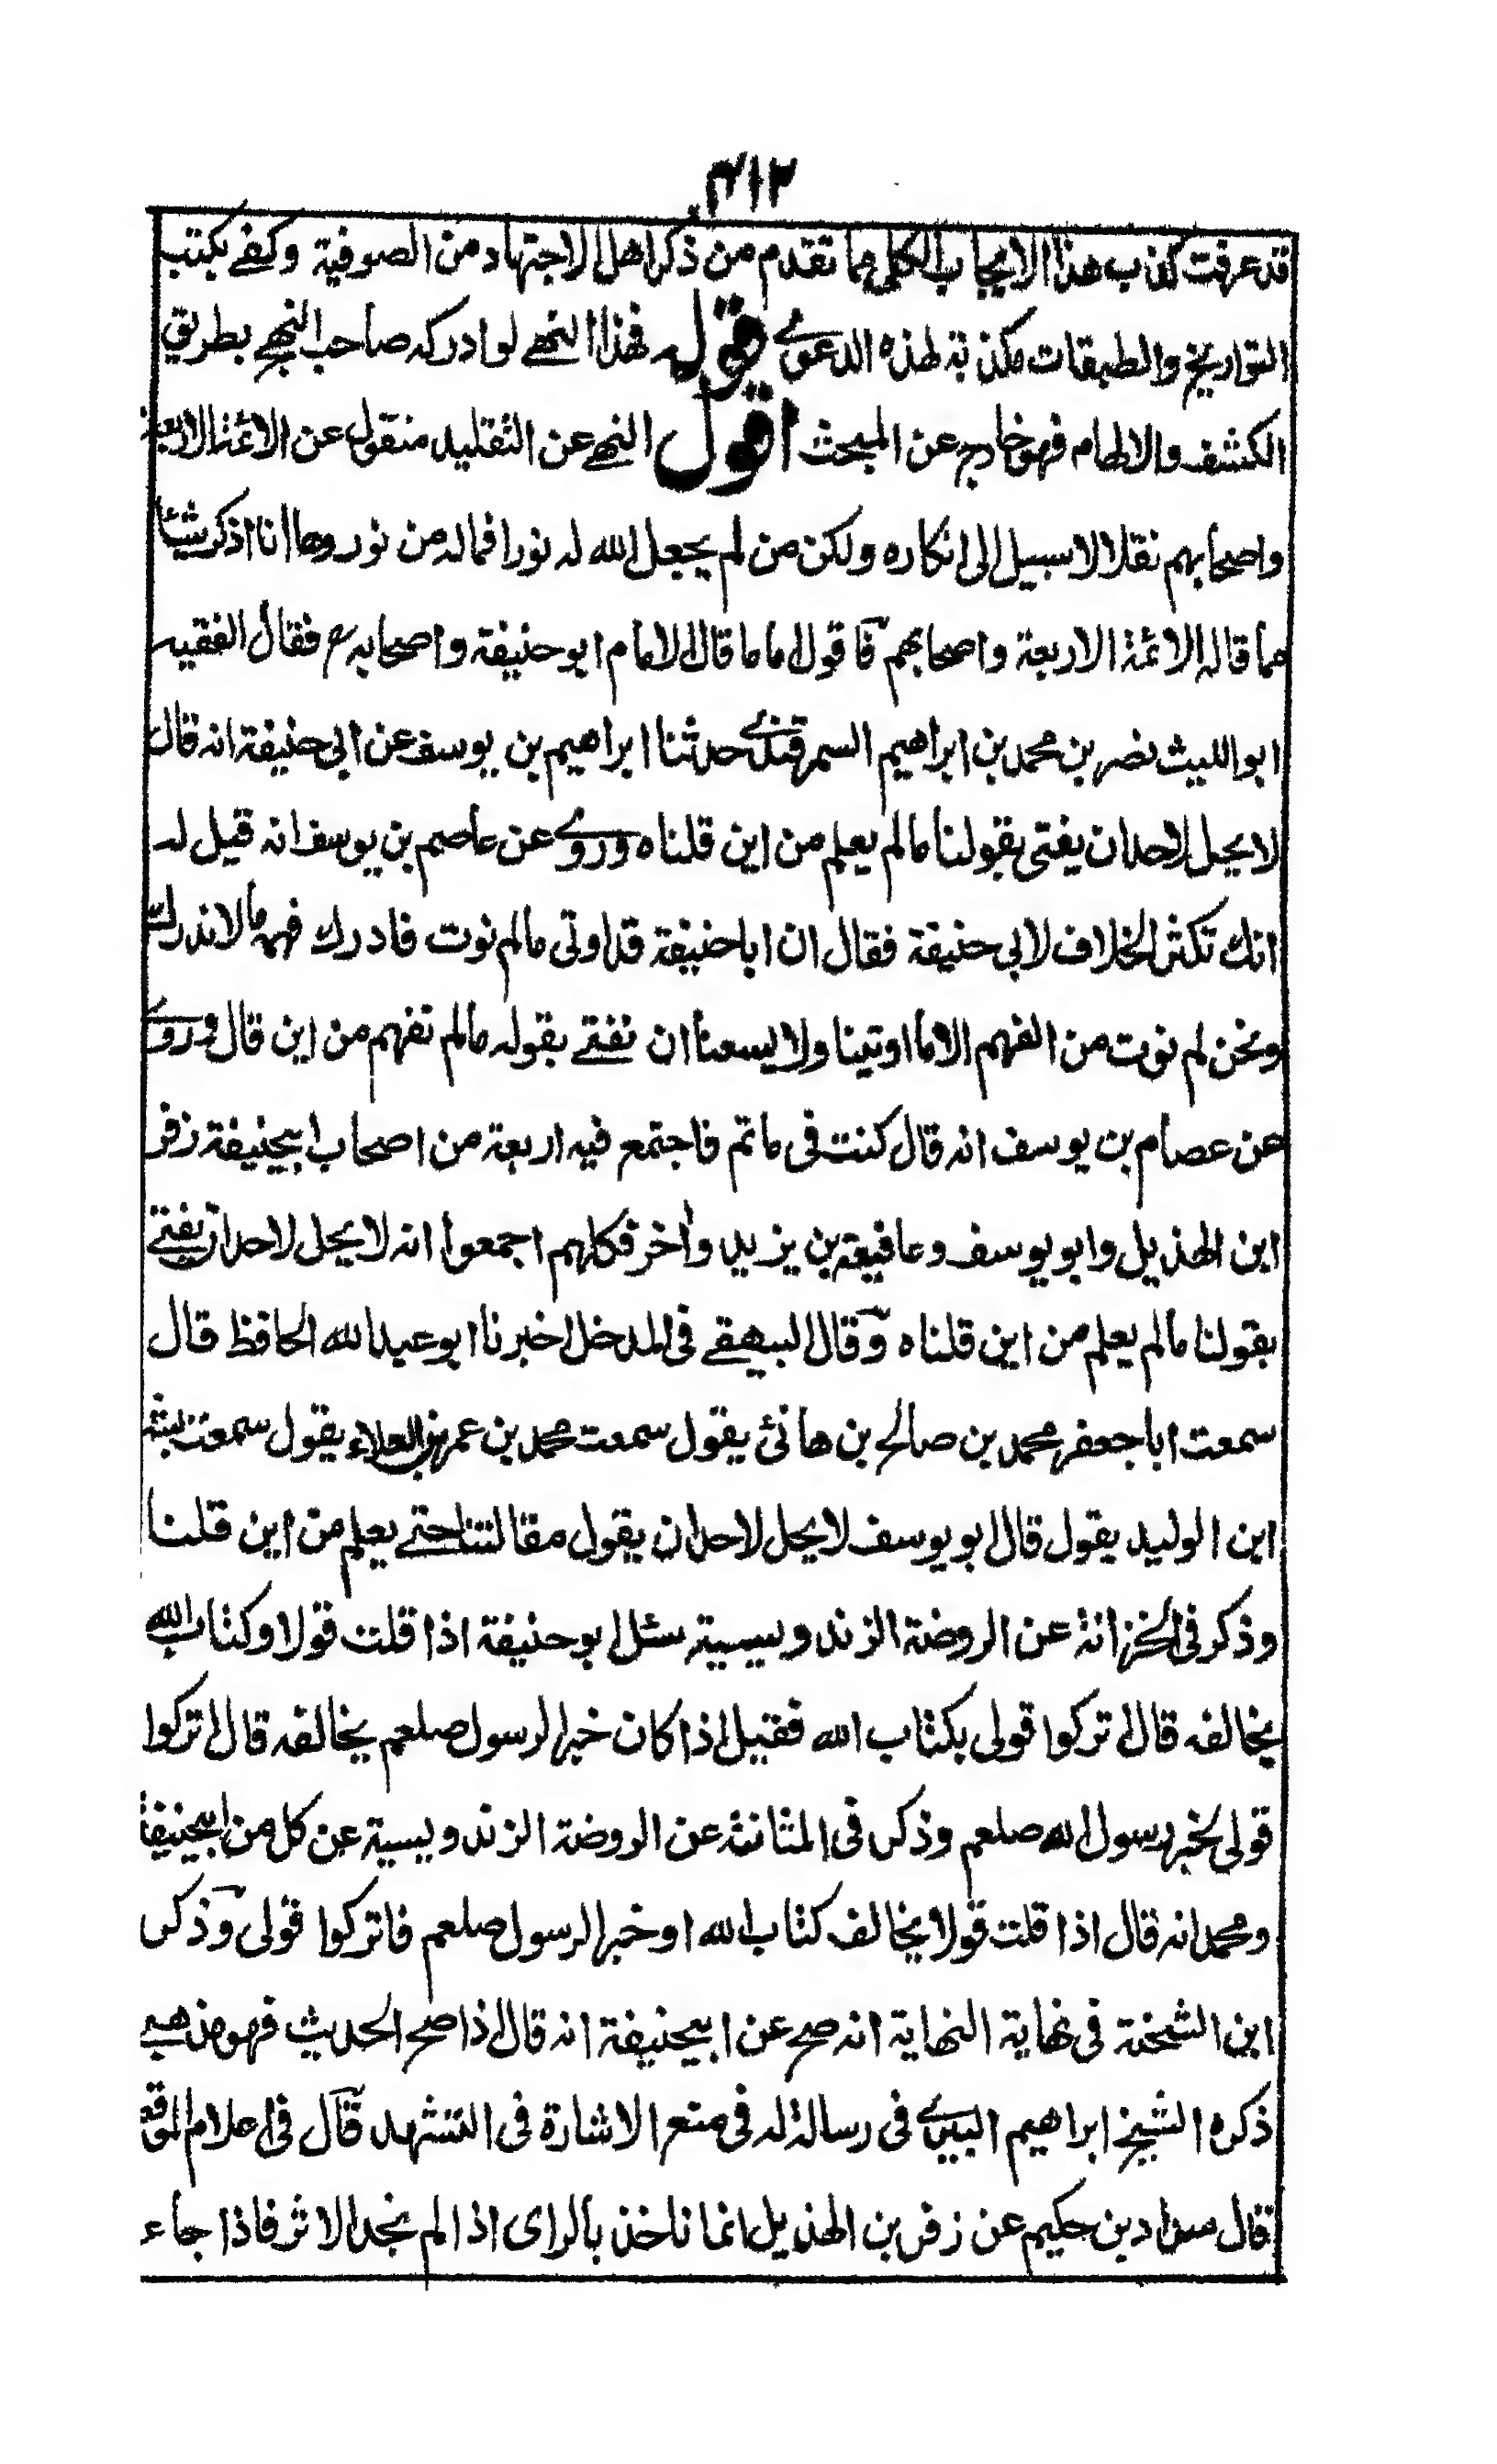 ٣١٢
قد عرفت كذب هذا الايجاب الكلى مما تقدم من ذكر اهل الاجتهاد من الصوفية وكفى بكتب
التواريخ والطبقات مكذبة لهذه الدعوى قوله فهذا النهى لو ادركه صاحب النهى بطريق
الكشف والالهام فهو خارج عن المبحث اقول النهى عن التقليد منقول عن الائمة الاربعة
واصحابهم نقلا لا سبيل الى انكاره ولكن من لم يجعل الله له نورا فما له من نور وها انا اذكر شيئا
مما قاله الائمة الاربعة واصحابهم فاقول اما ما قال الامام ابو حنيفة واصحابه رح فقال الفقيه
ابو الليث نصر بن محمد بن ابراهيم السمرقندى حدثنا ابراهيم بن يوسف عن ابى حنيفة انه قال
لا يحل لاحد ان يفتى بقولنا ما لم يعلم من اين قلناه وروى عن عاصم بن يوسف انه قيل له
انك تكثر الخلاف لابى حنيفة فقال ان ابا حنيفة قد اوتى ما لم نوت فادرك فهمه ما لا ندرك
ونحن لم نوت من الفهم الا ما اوتينا ولا يسعنا ان نفتى بقوله ما لم نفهم من اين قال وروى
عن عصام بن يوسف انه قال كنت فى ماتم فاجتمع فيه اربعة من اصحاب ابيحنيفة زفر
ابن الهذيل وابو يوسف وعافية بن يزيد واخر فكلهم اجمعوا انه لا يحل لاحد ان يفتى
بقولنا ما لم يعلم من اين قلناه وقال البيهقى فى المدخل اخبرنا ابو عبد الله الحافظ قال
سمعت ابا جعفر محمد بن صالح بن هانئ يقول سمعت محمد بن عمر بن العلاء يقول سمعت بشر
ابن الوليد يقول قال ابو يوسف لا يحل لاحد ان يقول مقالتنا حتى يعلم من اين قلنا
وذكر فى الخزانة عن الروضة الزندويسيتية سئل ابو حنيفة اذا قلت قولا وكتاب الله
يخالفه قال اتركوا قولى بكتاب الله فقيل اذا كان خبر الرسول صلعم يخالفه قال اتركوا
قولى بخبر رسول الله صلعم وذكر فى المتانة عن الروضة الزندويسية عن كل من ابيحنيفة
ومحمد انه قال اذا قلت قولا يخالف كتاب الله او خبر الرسول صلعم فاتركوا قولى وذكر
ابن الشحنة فى نهاية النهاية انه صح عن ابيحنيفة انه قال اذا صح الحديث فهو مذهبى
ذكره الشيخ ابراهيم البيرى فى رسالة له فى منع الاشارة فى التشهد قال فى اعلام الموقعين
قال سواد بن حكيم عن زفر بن الهذيل انما ناخذ بالراى اذا لم نجد الاثر فاذا جاء